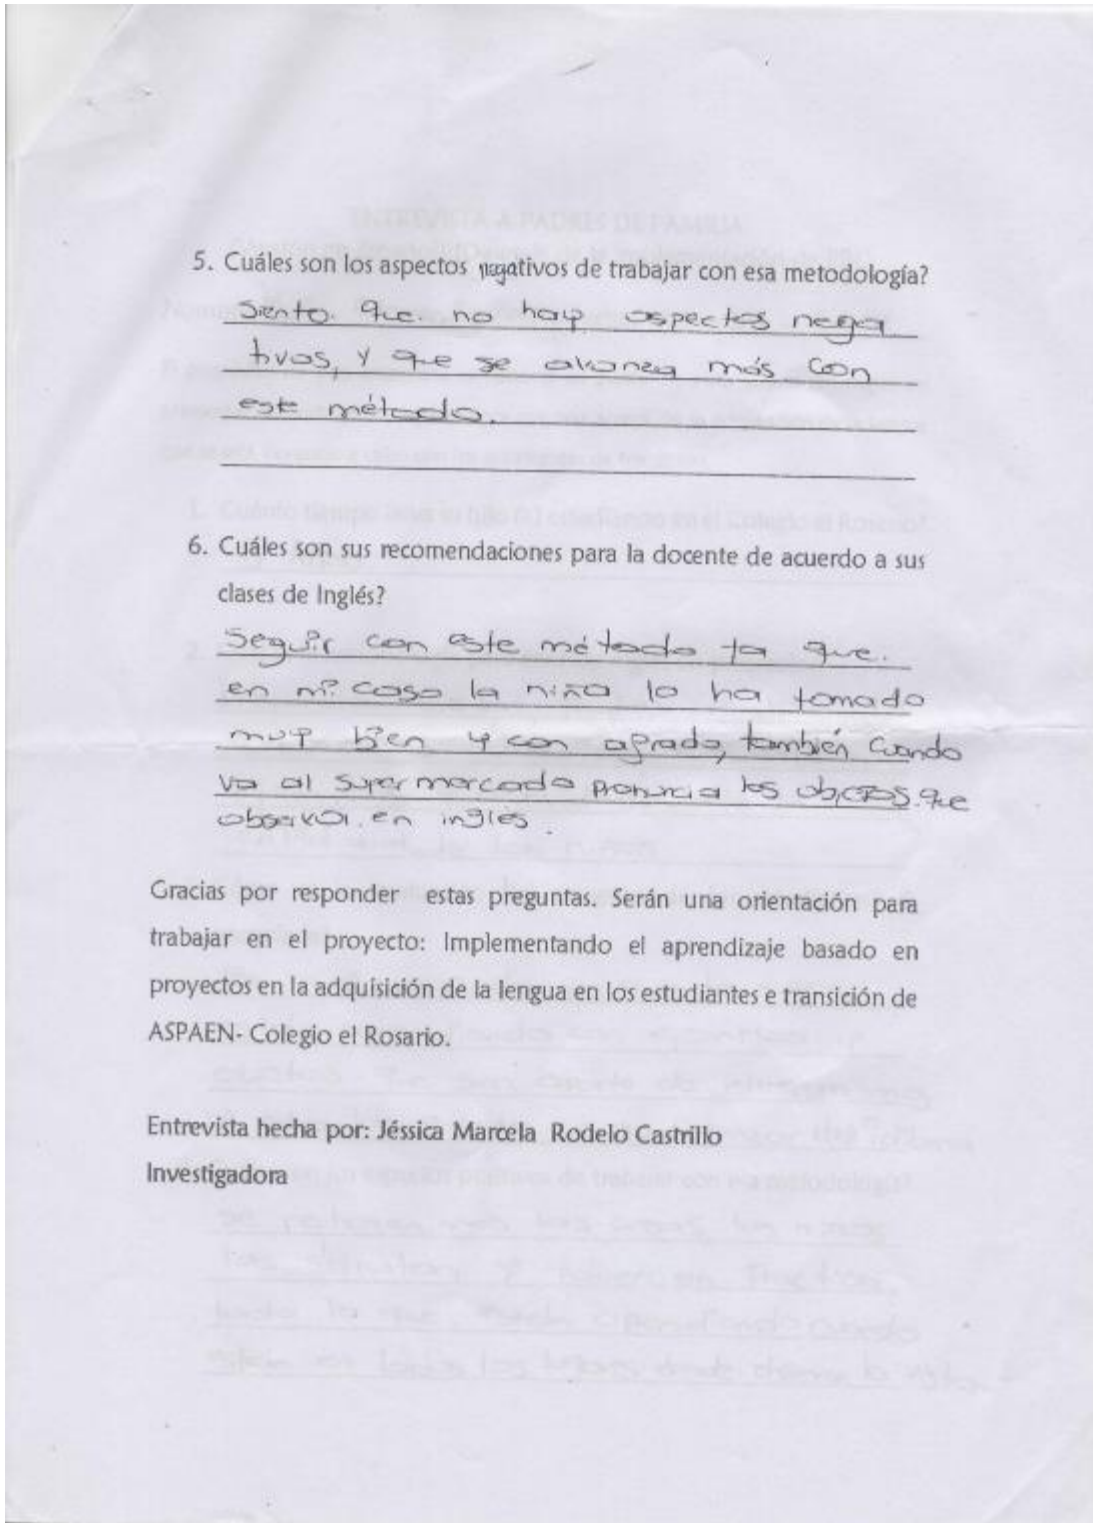 ENTREVISTA A PADRES DE FAMILIA
5. Cuáles son los aspectos negativos de trabajar con esa metodología?
Siento que no hay aspectos nega
tivos, y que se avanza más con
este método.
1. Cuánto tiempo lleva su hijo (a) estudiando en el Colegio el Rosario?
6. Cuáles son sus recomendaciones para la docente de acuerdo a sus
clases de Inglés?
2.
Seguir con este método ya que
en mi caso la niña lo ha tomado
muy bien y con agrado, también cuando
va al supermercado pronuncia los objetos que
observa en inglés.
Gracias por responder estas preguntas. Serán una orientación para
trabajar en el proyecto: Implementando el aprendizaje basado en
proyectos en la adquisición de la lengua en los estudiantes e transición de
ASPAEN- Colegio el Rosario.
Entrevista hecha por: Jéssica Marcela Rodelo Castrillo
Investigadora
aspectos positivos de trabajar con esa metodología?